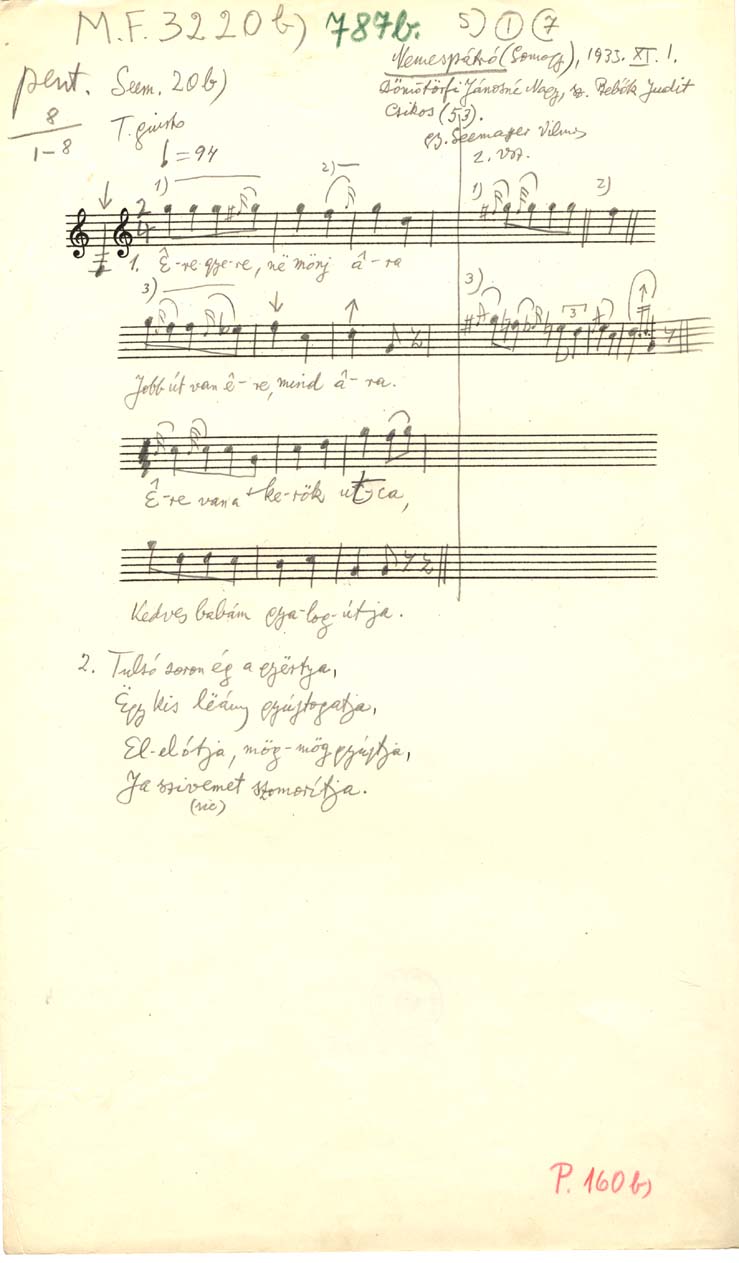 M.F. 3220b) 787b. 5) 1 7
pent. Seem. 20b)
Nemespátró (Somogy), 1933. XI. 1.
Dömötörfi Jánosné Nagy, sz. Bebők Judit
8
1-8
T. giusto
Csikos (53).
gy. Seemayer Vilmos
= 94
2. vsz.
1) 2) 1) 2)
2
4
1. Ê-re gye-re, në mönj â-ra
3) 3)
3
Jobb út van ê-re, mind â-ra.
Ê-re van a ke-rök ut-ca,
Kedves babám gya-log-útja.
2. Tulsó soron ég a gyërtya,
Ëgy kis lëány gyújtogatja,
El-elótja, mög-mög gyújtja,
Ja szivemet szomorítja.
(sic)
P. 160b)